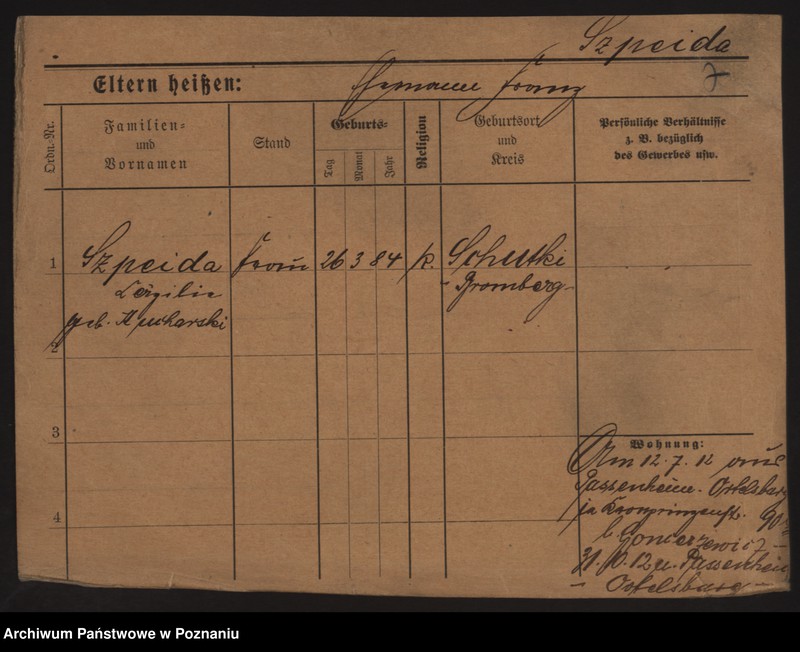 Szpeida
7
Eltern heißen: Ehemann Franz
Ordn.-Nr.
Familien-
und
Vornamen
Stand
Geburts-
Tag
Monat
Jahr
Religion
Geburtsort
und
Kreis
Persönliche Verhältnisse
z. B. bezüglich
des Gewerbes usw.
1 Szpeida Frau 26 3 84 k. Schutki
Cäzilie - Bromberg -
geb. Kucharski
2
3
Wohnung:
Am 12.7.12 aus
Passenheim. Ortelsburg
in Kronprinzenstr. 90
b. Goncerzewicz -
31.10.12 n. Passenheim
- Ortelsburg -
4
Archiwum Państwowe w Poznaniu